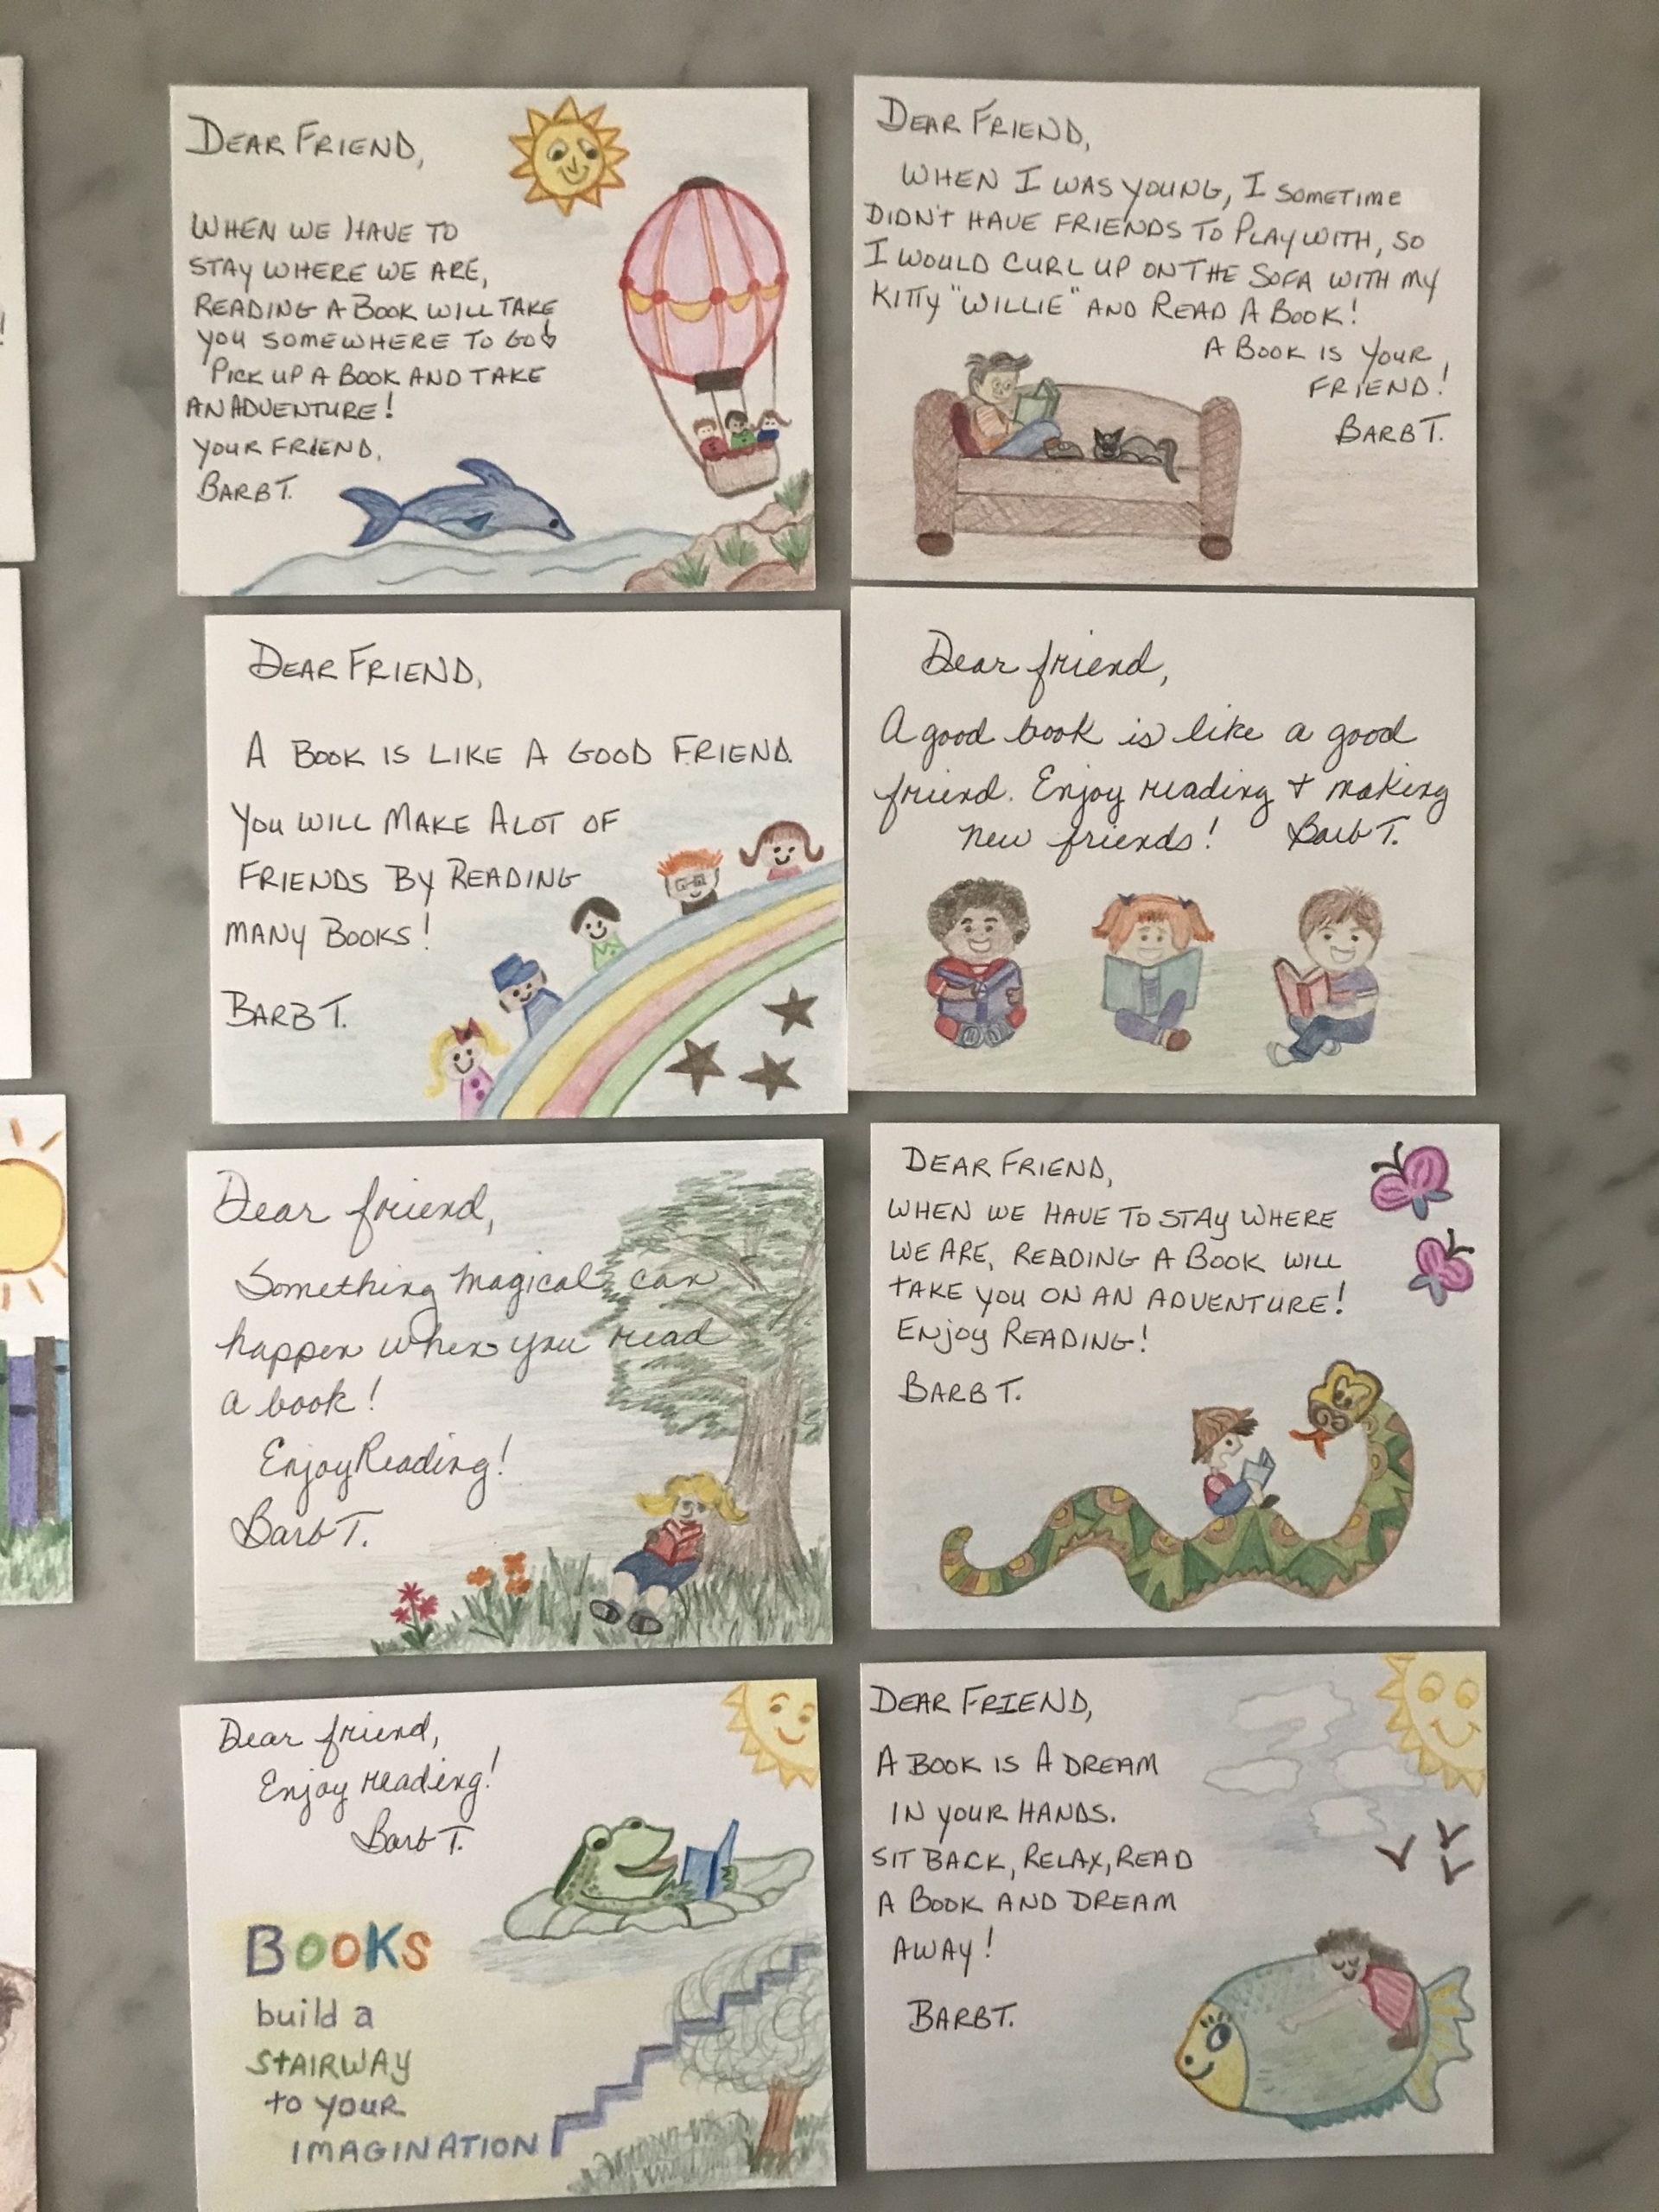 DEAR FRIEND,
WHEN WE HAVE TO
STAY WHERE WE ARE,
READING A BOOK WILL TAKE
YOU SOMEWHERE TO GO!
PICK UP A BOOK AND TAKE
AN ADVENTURE!
YOUR FRIEND,
BARB T.
DEAR FRIEND,
WHEN I WAS YOUNG, I SOMETIME
DIDN'T HAVE FRIENDS TO PLAY WITH, SO
I WOULD CURL UP ON THE SOFA WITH MY
KITTY "WILLIE" AND READ A BOOK!
A BOOK IS YOUR
FRIEND!
BARB T.
DEAR FRIEND,
A BOOK IS LIKE A GOOD FRIEND.
YOU WILL MAKE ALOT OF
FRIENDS BY READING
MANY BOOKS!
BARB T.
Dear friend,
A good book is like a good
friend. Enjoy reading + making
new friends! Barb T.
Dear friend,
Something magical can
happen when you read
a book!
Enjoy Reading!
Barb T.
DEAR FRIEND,
WHEN WE HAVE TO STAY WHERE
WE ARE, READING A BOOK WILL
TAKE YOU ON AN ADVENTURE!
ENJOY READING!
BARB T.
Dear friend,
Enjoy reading!
Barb T.
BOOKS
build a
STAIRWAY
to YOUR
IMAGINATION
DEAR FRIEND,
A BOOK IS A DREAM
IN YOUR HANDS.
SIT BACK, RELAX, READ
A BOOK AND DREAM
AWAY!
BARB T.